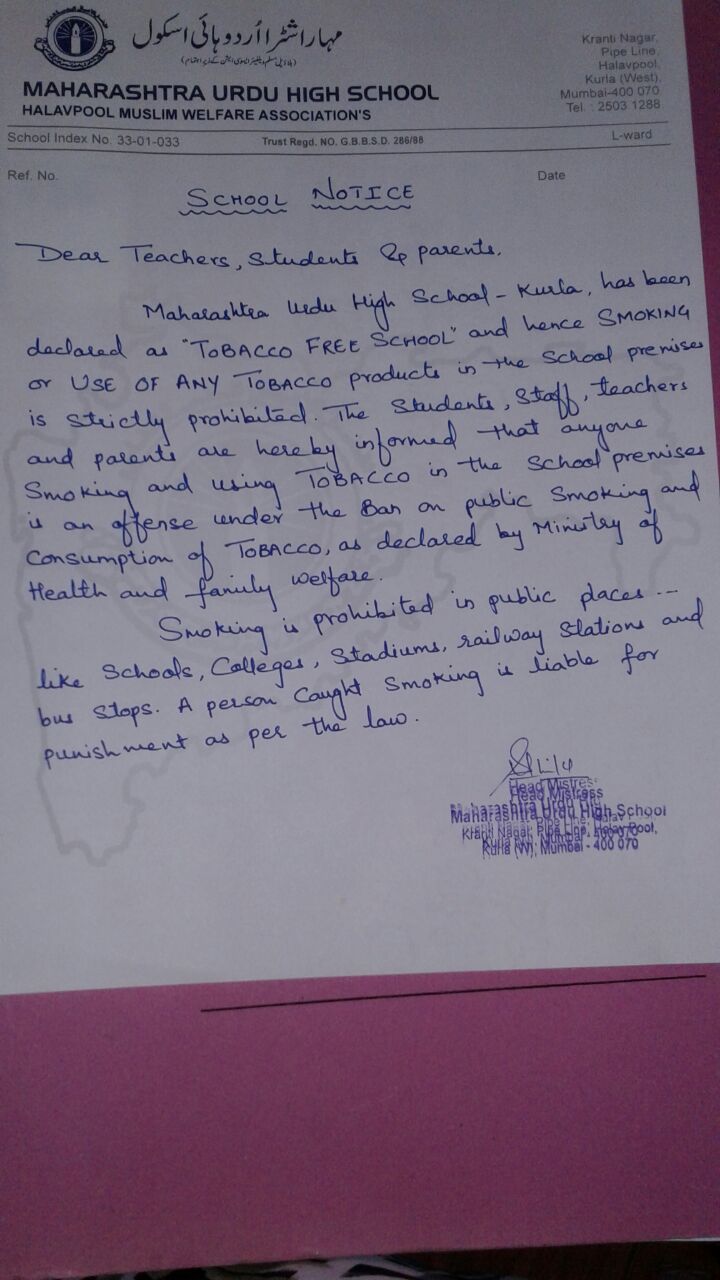 مہاراشٹرا اُردو ہائی اسکول
MAHARASHTRA URDU HIGH SCHOOL
HALAVPOOL MUSLIM WELFARE ASSOCIATION'S
Kranti Nagar,
Pipe Line,
Halavpool,
Kurla (West),
Mumbai-400 070
Tel. : 2503 1288
School Index No. 33-01-033 Trust Regd. NO. G.B.B.S.D. 286/88 L-ward
Ref. No. Date
SCHOOL NOTICE
Dear Teachers, Students & parents.
Maharashtra Urdu High School - Kurla, has been
declared as "TOBACCO FREE SCHOOL" and hence SMOKING
or USE OF ANY TOBACCO products in the School premises
is strictly prohibited. The Students, Staff, teachers
and parents are hereby informed that anyone
Smoking and using TOBACCO in the School premises
is an offense under the Ban on public Smoking and
Consumption of TOBACCO, as declared by Ministry of
Health and family welfare.
Smoking is prohibited in public places --
like Schools, Colleges, Stadiums, railway Stations and
bus stops. A person Caught Smoking is liable for
punishment as per the law.
Head Mistress
Maharashtra Urdu High School
Kranti Nagar, Pipe Line, Halav Pool,
Kurla (W), Mumbai - 400 070